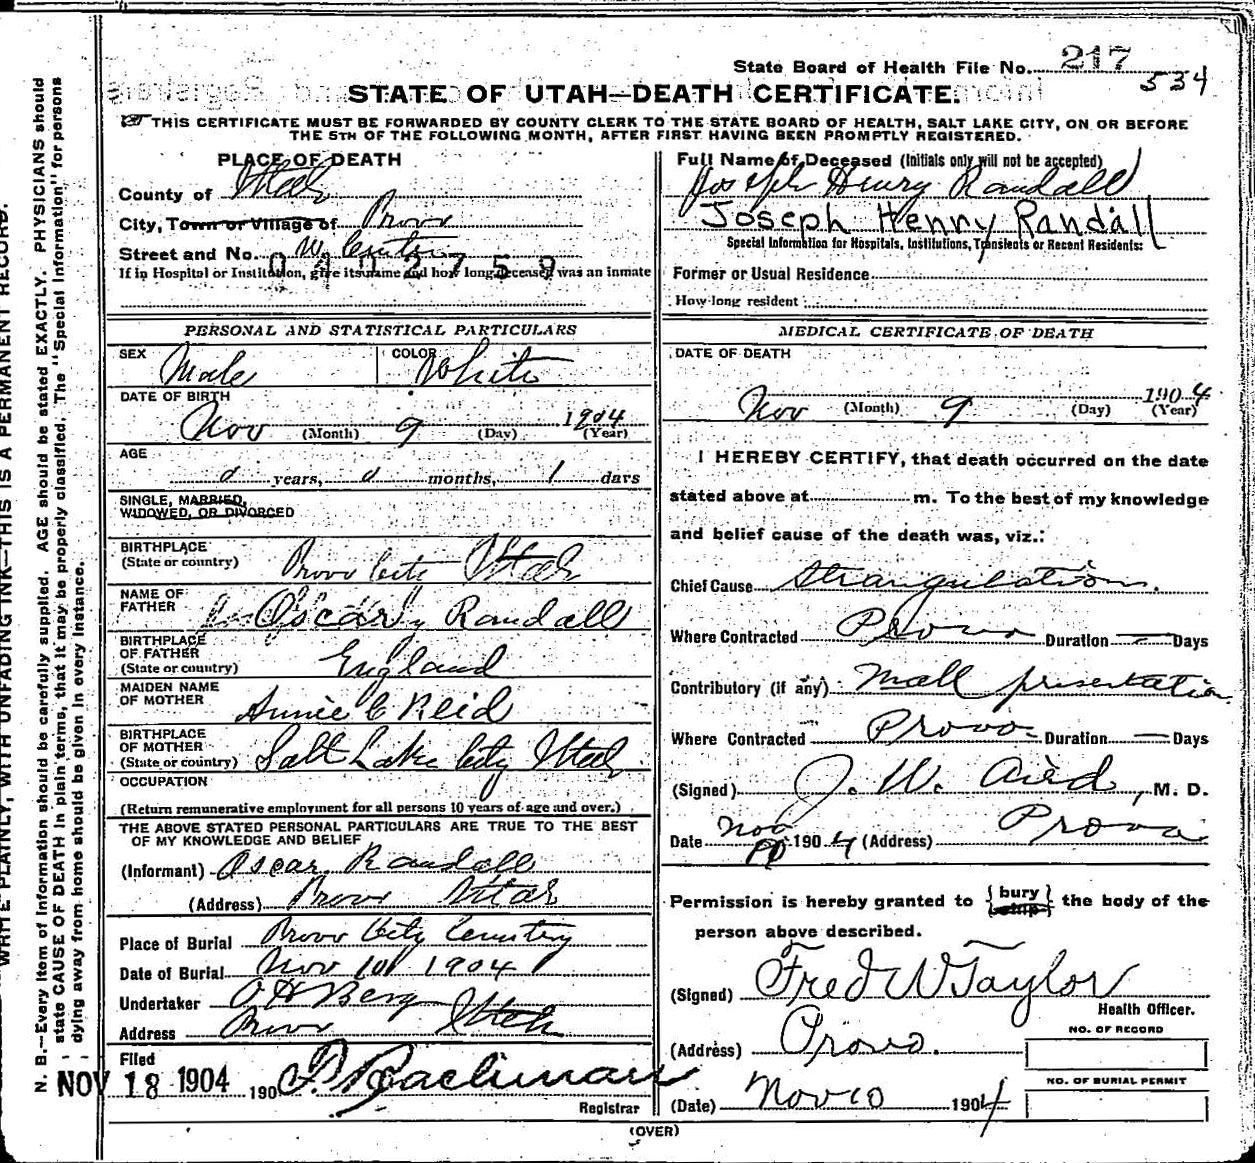 State Board of Health File No. 217
534
STATE OF UTAH—DEATH CERTIFICATE.
THIS CERTIFICATE MUST BE FORWARDED BY COUNTY CLERK TO THE STATE BOARD OF HEALTH, SALT LAKE CITY, ON OR BEFORE
THE 5TH OF THE FOLLOWING MONTH, AFTER FIRST HAVING BEEN PROMPTLY REGISTERED.
PLACE OF DEATH
County of Utah
City, Town or Village of Provo
Street and No. W. Center
0402759
If in Hospital or Institution, give its name and how long deceased was an inmate
Full Name of Deceased (Initials only will not be accepted)
Joseph Henry Randall
Joseph Henry Randall
Special Information for Hospitals, Institutions, Transients or Recent Residents:
Former or Usual Residence
How long resident
PERSONAL AND STATISTICAL PARTICULARS
SEX Male COLOR White
DATE OF BIRTH
Nov (Month) 9 (Day) 1904 (Year)
AGE
0 years, 0 months, 1 days
SINGLE, MARRIED,
WIDOWED, OR DIVORCED
BIRTHPLACE
(State or country) Provo City Utah
NAME OF
FATHER Oscar Randall
BIRTHPLACE
OF FATHER
(State or country) England
MAIDEN NAME
OF MOTHER Annie C Reid
BIRTHPLACE
OF MOTHER
(State or country) Salt Lake City Utah
OCCUPATION
(Return remunerative employment for all persons 10 years of age and over.)
THE ABOVE STATED PERSONAL PARTICULARS ARE TRUE TO THE BEST
OF MY KNOWLEDGE AND BELIEF
(Informant) Oscar Randall
(Address) Provo Utah
Place of Burial Provo City Cemetery
Date of Burial Nov 10 1904
Undertaker O H Berg
Address Provo Utah
Filed
NOV 18 1904 190
Registrar
MEDICAL CERTIFICATE OF DEATH
DATE OF DEATH
Nov (Month) 9 (Day) 1904 (Year)
I HEREBY CERTIFY, that death occurred on the date
stated above at m. To the best of my knowledge
and belief cause of the death was, viz.:
Chief Cause Strangulation.
Where Contracted Provo Duration — Days
Contributory (if any) Mall presentation
Where Contracted Provo Duration — Days
(Signed) J. W. Aird, M. D.
Date Nov 10 1904 (Address) Provo
Permission is hereby granted to {bury ship} the body of the
person above described.
(Signed) Fred W Taylor
Health Officer.
(Address) Provo.
NO. OF RECORD
NO. OF BURIAL PERMIT
(Date) Nov 10 1904
(OVER)
N. B.—Every item of information should be carefully supplied. AGE should be stated EXACTLY. PHYSICIANS should
state CAUSE OF DEATH in plain terms, that it may be properly classified. The "Special Information" for persons
dying away from home should be given in every instance.
WRITE PLAINLY, WITH UNFADING INK—THIS IS A PERMANENT RECORD.